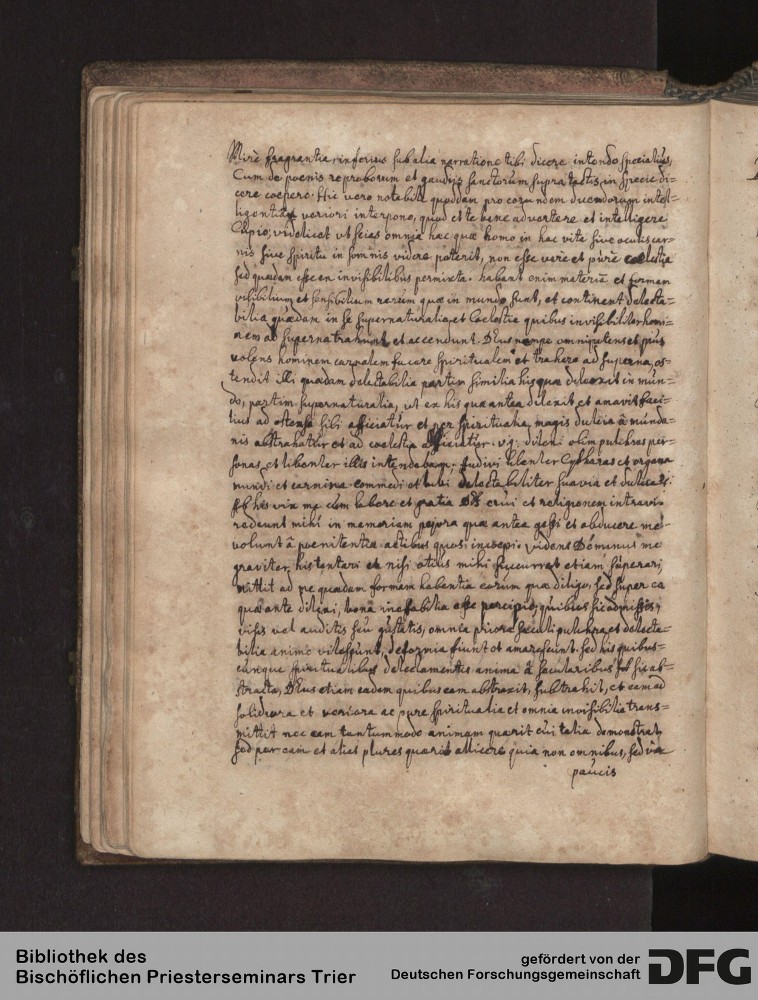 Mire fragrantia inferius sub alia narratione tibi dicere intendo specialius,
Cum de poenis reproborum et gaudiis sanctorum supra tactis, in specie di=
cere coepero. Hic vero notabile quoddam pro eorundem dicendorum intel=
ligentia veriori interpono, quod et te bene advertere et intelligere
Cupio; videlicet ut scias omnia haec quae homo in hac vita sive oculis car=
nis sive spiritu in somnis videre poterit, non esse vere et pure coelestia
sed quaedam esse en invisibilibus permixta. habent enim materiam et formam
visibilium et sensibilium rerum quae in mundo sunt, et continent delecta=
bilia quaedam in se supernaturalia et Coelestia quibus invisibiliter homi=
nem ad superna trahunt et accendunt. Deus nempe omnipotens et pius
volens hominem carnalem facere spiritualem et trahere ad superna, os=
tendit illi quaedam delectabilia partim similia his quae dilexit in mun=
do, partim supernaturalia, ut ex his quae antea dilexit et amavit faci=
lius ad ostensa sibi afficiatur et per spiritualia magis dulcia à munda=
nis abstrahatur et ad coelestia afficiatur. v.g. dilexi olim pulchras per=
sonas et libenter illis intendebam. Audivi libenter Cytharas et organa
mundi et carmina. commedi et bibi delectabiliter suavia et dulcia
his vix me cum labore et gratia erui et religionem intravi.
redeunt mihi in memoriam pejora quae antea gessi et abducere me
volunt à poenitentiae actibus quos incoepi. videns Dominus me
graviter his tentari et nisi citius mihi succurrat etiam superari,
mittit ad me quaedam formam habentia eorum quae diligo, sed super ea
quae ante dilexi, bona ineffabilia esse percipio, quibus sic admissis,
visis vel auditis seu gustatis, omnia priora saeculi pulchra et delecta=
bilia animo vilescunt, deformia fiunt et amarescunt. sed his quibus=
cunque spiritualibus delectamentis anima à saecularibus sic abs=
tracta, Deus etiam eadem quibus eam abstraxit, subtrahit, et eam ad
solidiora et veriora ac pure spiritualia et omnia invisibilia trans=
mittit nec eam tantummodo animam quaerit cui talia demonstrat,
sed per eam et alias plures quaerit allicere quia non omnibus, sed vix
paucis
Bibliothek des
Bischöflichen Priesterseminars Trier
gefördert von der
Deutschen Forschungsgemeinschaft
DFG